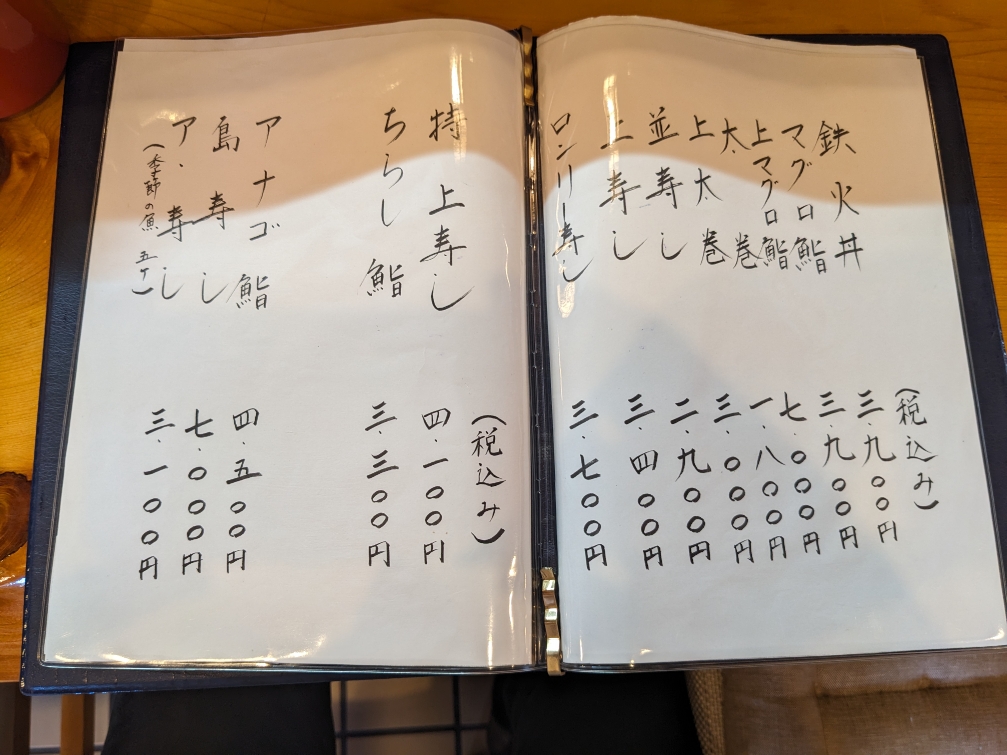 (税込み)
鉄火丼 三.九〇〇円
マグロ鮨 三.九〇〇円
上マグロ鮨 七.〇〇〇円
太巻 一.八〇〇円
上太巻 三.〇〇〇円
並寿し 二.九〇〇円
上寿し 三.四〇〇円
ロンリー寿し 三.七〇〇円
(税込み)
特上寿し 四.一〇〇円
ちらし鮨 三.三〇〇円
アナゴ鮨 四.五〇〇円
島寿し 七.〇〇〇円
ア.寿し 三.一〇〇円
(季節の魚 五ケ)